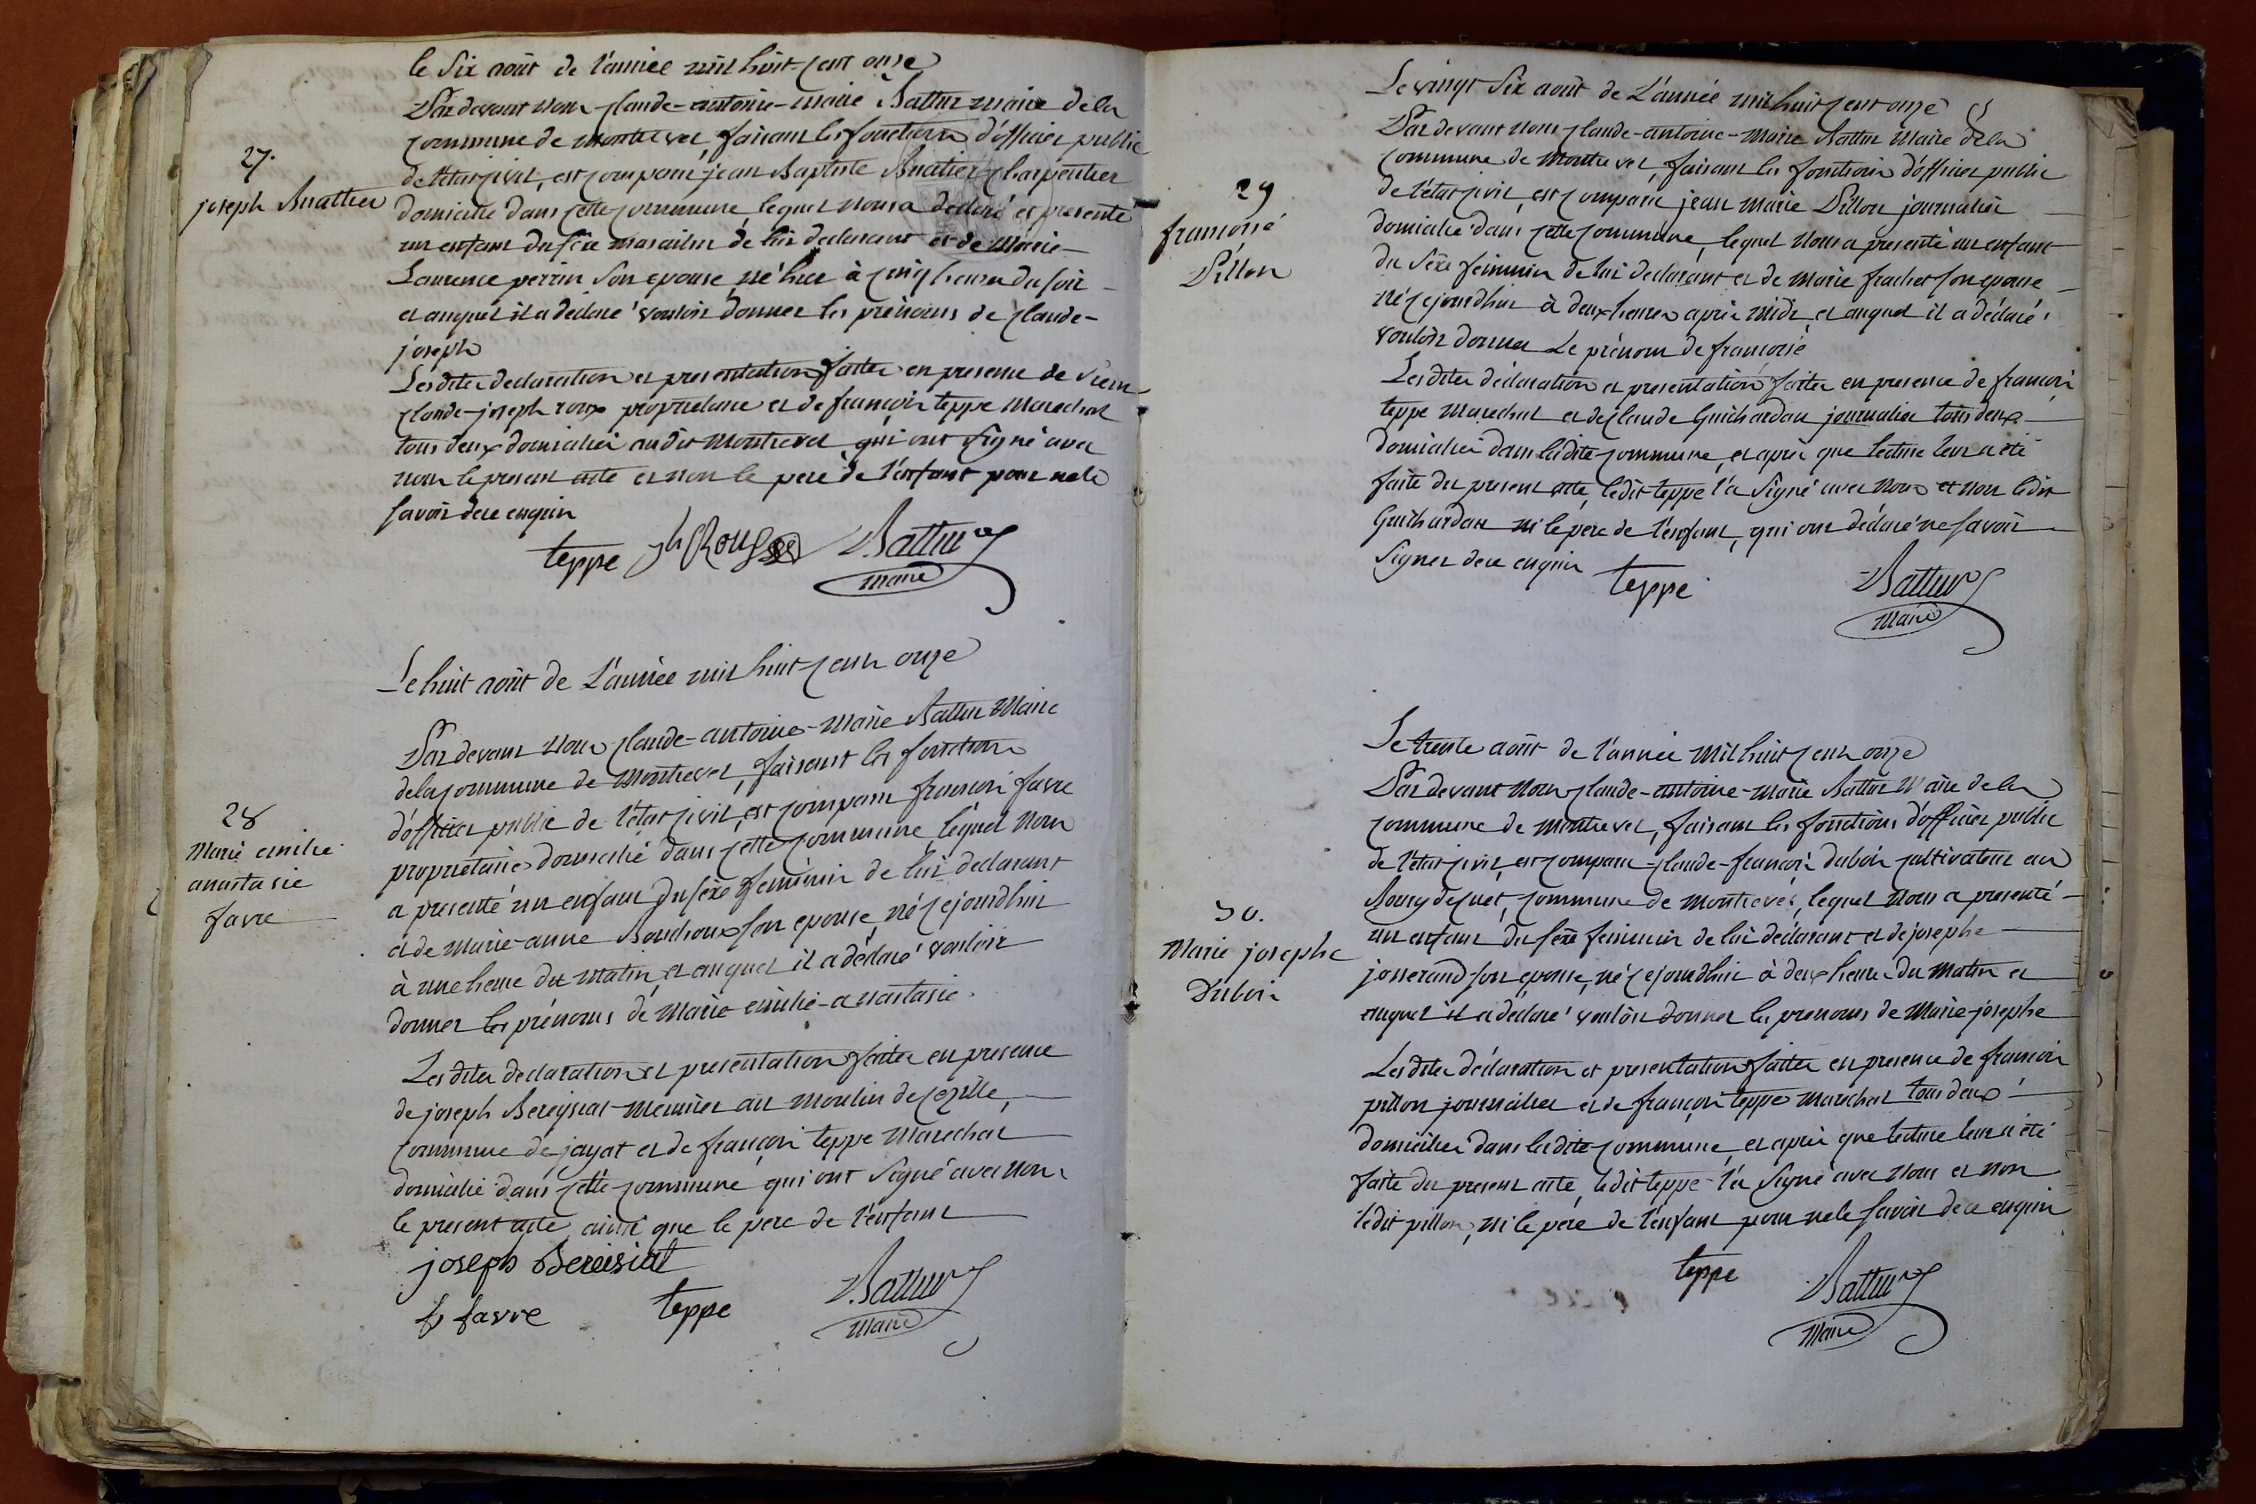 le six août de l'année mil huit cent onze
Par devant nous Claude-antoine-marie Battur maire de la
commune de montrevel, faisant les fonctions d'officier public
de l'état civil, est comparu jean Baptiste Buatier charpentier
27.
joseph Buattier
domicilié dans cette commune lequel nous a déclaré et presenté
un enfant du sexe masculin de lui declarant et de Marie
Laurence perrin son epouse, né hier à cinq heures du soir
et auquel il a déclaré vouloir donner les prénoms de Claude-
joseph
Lesdites declaration et presentation faites en presence de sieur
Claude-joseph roux proprietaire et de françois teppe marechal
tous deux domiciliés audit montrevel, qui ont signé avec
nous le present acte et non le pere de l'enfant pour ne le
savoir de ce enquis
teppe jh Roux Battur
maire
Le huit août de L'année mil huit cent onze
Par devant nous Claude-antoine-Marie Battur Maire
de la commune de Montrevel, faisant les fonctions
d'officier public de l'état civil, est comparu françois favre
28
Marie emilie
anastasie
favre
proprietaire domicilié dans cette commune, lequel nous
a presenté un enfant du sexe feminin de lui declarant
et de Marie-anne Boudroux son epouse, né cejourdhui
à une heure du matin, et auquel il a déclaré vouloir
donner les prénoms de Marie emilie-anastasie.
Lesdites declaration et presentation faites en presence
de joseph Bereysiat meunier au moulin de Cezille,
commune de jayat et de françois teppe Marechal
domicilié dans cette commune qui ont signé avec nous
le present acte ainsi que le pere de l'enfant
joseph Bereisiat
f favre teppe Battur
maire
Le vingt six août de L'année mil huit cent onze
Par devant nous Claude-antoine-Marie Battur Maire de la
commune de Montrevel, faisant les fonctions d'officier public
29
francoise
Pillon
de l'état civil, est comparu jean marie Pillon journalier
domicilié dans cette commune, lequel nous a presenté un enfant
du sexe feminin de lui declarant et de Marie frachet son epouse
né cejourdhui à deux heures après midi, et auquel il a déclaré
vouloir donner Le prénom de francoise
Lesdites déclaration et presentation faites en presence de francois
teppe Marechal et de Claude Guichardan journalier tous deux
domiciliés dans ladite commune, et après que lecture leur a été
faite du present acte, ledit teppe l'a signé avec nous et non ledit
Guichardan ni le père de l'enfant, qui ont déclaré ne savoir
signer de ce enquis
teppe Battur
Maire
Le trente août de l'année Mil huit cent onze
Par devant nous Claude-antoine-Marie Battur Maire de la
commune de Montrevel, faisant les fonctions d'officier public
de l'état civil, est comparu Claude-françois dubois cultivateur au
30.
Marie josephe
Dubois
Bourg de Cuet, commune de montrevel, lequel nous a presenté
un enfant du sexe feminin de lui déclarant et de josephe
josserand son epouse, né cejourdhui à deux heures du matin et
auquel il a déclaré vouloir donner les prenoms de Marie-josephe
Lesdites déclaration et presentation faites en presence de francois
pillon journalier et de françois teppe marechal tous deux
domiciliés dans ladite commune, et après que lecture leur a été
faite du present acte, ledit teppe l'a signé avec nous et non
ledit pillon, ni le père de l'enfant pour ne le savoir de ce enquis
teppe Battur
Maire